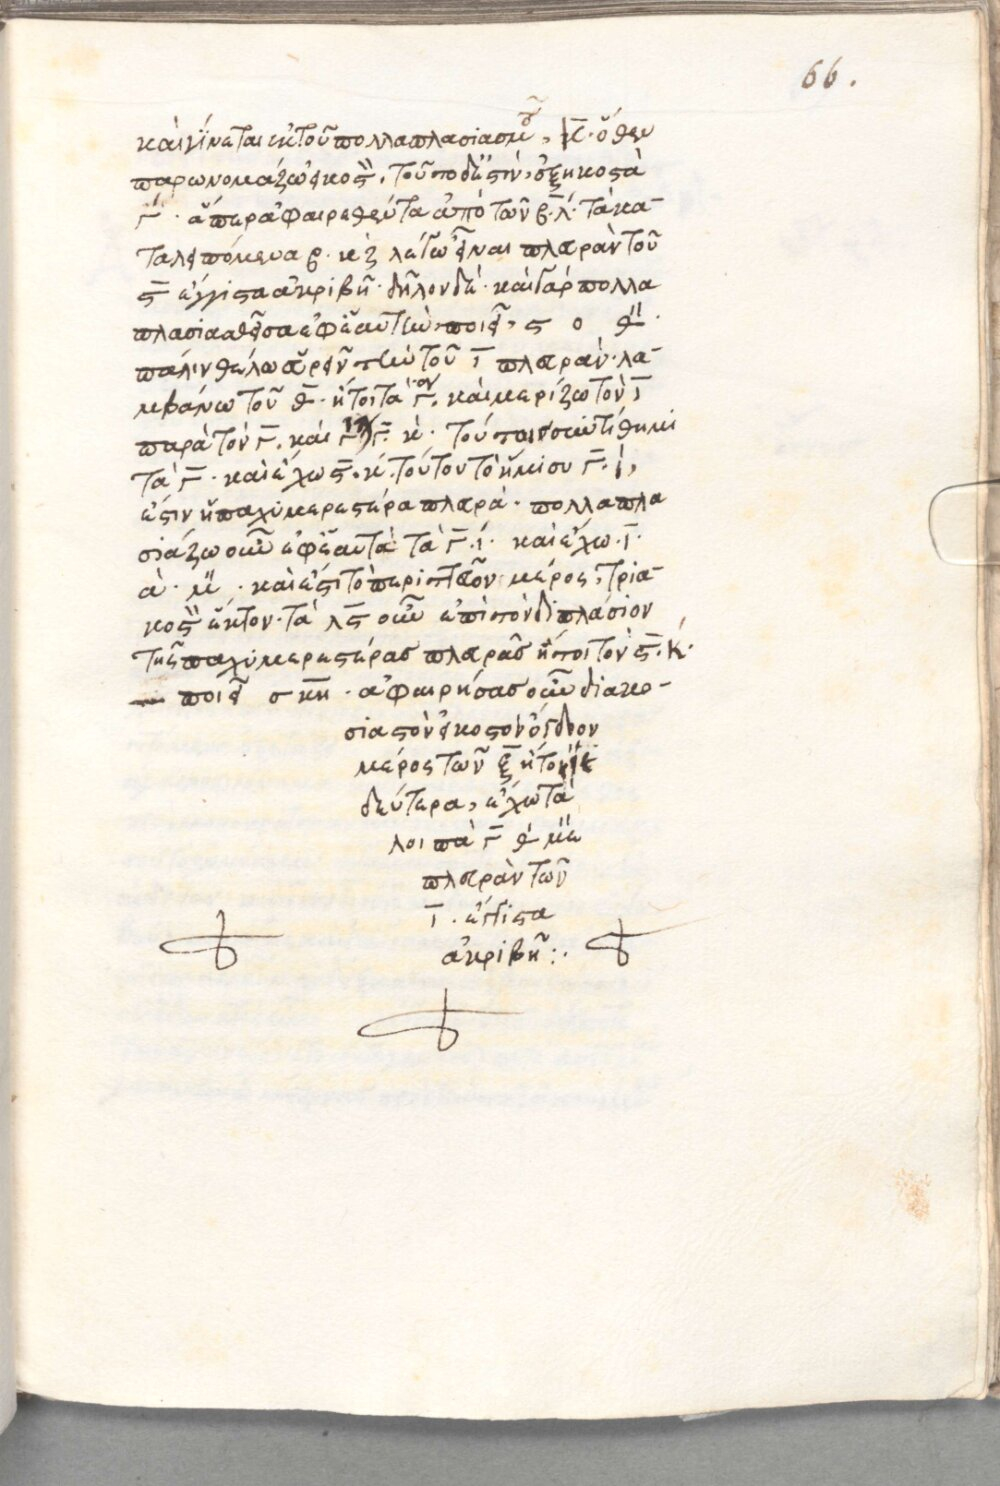 66.
καὶ γίνεται ἐκ τοῦ πολλαπλασιασμοῦ, κ̅. ὅθεν
παρωνομάζω εἰκοστὰ. τουτο δέ ἐστιν, ἑξηκοστὰ
γ̅. ἅπερ ἀφαιρεθέντα ἀπὸ τῶν β. λ. τὰ κα-
ταλειπόμενα β. κζ λέγω εἶναι πλευρὰν τοῦ
ς̅ ἔγγιστα ἀκριβῆ. δῆλον δέ. καὶ γὰρ πολλα
πλασιασθεῖσα ἐφ' ἑαυτὴν ποιεῖ, ς ο θ.
πάλιν θέλω εὑρεῖν τὴν τοῦ ι̅ πλευράν. λα-
μβάνω τοῦ θ̅. ἤτοι τὰ γ̅. καὶ μερίζω τὸν ι̅
παρὰ τὸν γ̅. καὶ γ̅ κ. τούτοις συντίθημι
τὰ γ̅. καὶ ἔχω ς̅. κ. τούτου τὸ ἥμισυ γ̅. ι,
ἐστιν ἡ παχυμερεστέρα πλευρά. πολλαπλα
σιάζω οὖν ἐφ' ἑαυτὰ τὰ γ̅. ι. καὶ ἔχω. ι̅.
α. μ. καὶ ἔστι τὸ περιττεῦον μέρος, τρια-
κοστὸν ἕκτον. τὰ λς̅ οὖν ἐπὶ τὸν διπλάσιον
τῆς παχυμερεστέρας πλευρᾶς ἤτοι τὸν ς̅. κ.
ποιεῖ σκη. ἀφαιρήσας οὖν διακο-
σιαστὸν εἰκοστὸν ὄγδοον
μέρος τῶν ξ̅ ἤτοι ιε
δεύτερα, ἔχω τὰ
λοιπὰ γ̅ θ με
πλευρὰν τῶν
ι̅. ἔγγιστα
ἀκριβῆ:.